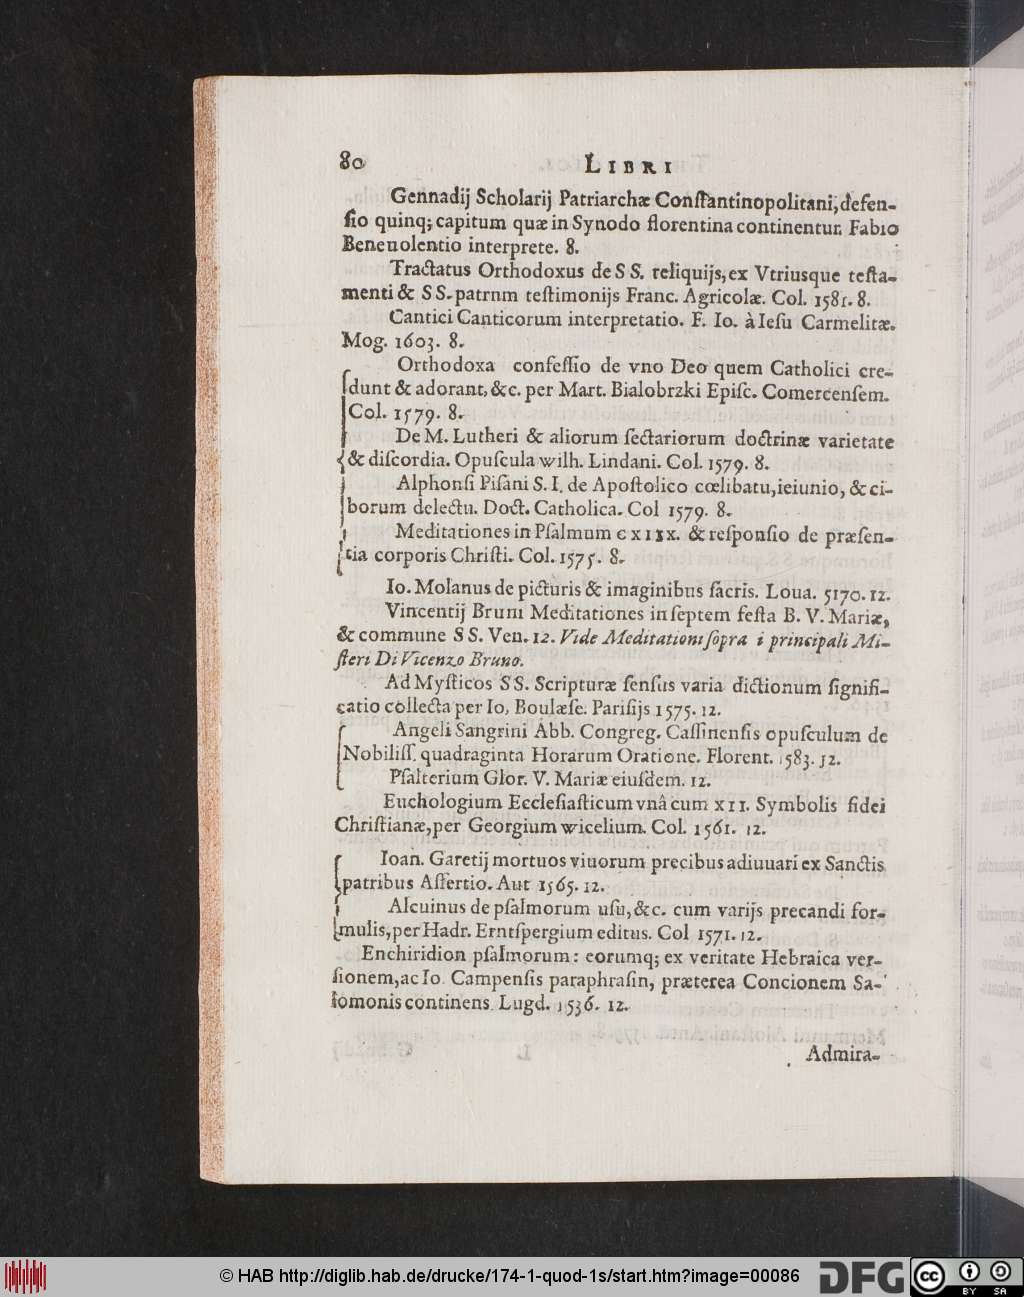 80 LIBRI
Gennadij Scholarij Patriarchæ Conſtantinopolitani, defen-
ſio quinq; capitum quæ in Synodo florentina continentur. Fabio
Beneuolentio interprete. 8.
Tractatus Orthodoxus de S S. reliquijs, ex Vtriusque teſta-
menti & S S. patrnm teſtimonijs Franc. Agricolæ. Col. 1581. 8.
Cantici Canticorum interpretatio. F. Io. à Ieſu Carmelitæ.
Mog. 1603. 8.
Orthodoxa confeſſio de vno Deo quem Catholici cre-
dunt & adorant, &c. per Mart. Bialobrzki Epiſc. Comercenſem.
Col. 1579. 8.
De M. Lutheri & aliorum ſectariorum doctrinæ varietate
& diſcordia. Opuſcula wilh. Lindani. Col. 1579. 8.
Alphonſi Piſani S. I. de Apoſtolico cœlibatu, ieiunio, & ci-
borum delectu. Doct. Catholica. Col 1579. 8.
Meditationes in Pſalmum CXIIX. & reſponſio de præſen-
tia corporis Chriſti. Col. 1575. 8.
Io. Molanus de picturis & imaginibus ſacris. Loua. 5170. 12.
Vincentij Bruni Meditationes in ſeptem feſta B. V. Mariæ,
& commune S S. Ven. 12. Vide Meditationi ſopra i principali Mi-
ſteri Di Vicenzo Bruno.
Ad Myſticos S S. Scripturæ ſenſus varia dictionum ſignifi-
catio collecta per Io, Boulæſe. Pariſijs 1575. 12.
Angeli Sangrini Abb. Congreg. Caſſinenſis opuſculum de
Nobiliſſ. quadraginta Horarum Oratione. Florent. 1583. 12.
Pſalterium Glor. V. Mariæ eiuſdem. 12.
Euchologium Eccleſiaſticum vnâ cum XII. Symbolis fidei
Chriſtianæ, per Georgium wicelium. Col. 1561. 12.
Ioan. Garetij mortuos viuorum precibus adiuuari ex Sanctis
patribus Aſſertio. Aut 1565. 12.
Alcuinus de pſalmorum uſu, &c. cum varijs precandi for-
mulis, per Hadr. Erntſpergium editus. Col 1571. 12.
Enchiridion pſalmorum: eorumq; ex veritate Hebraica ver-
ſionem, ac Io. Campenſis paraphraſin, præterea Concionem Sa-
lomonis continens. Lugd. 1536. 12.
Admira-
© HAB http://diglib.hab.de/drucke/174-1-quod-1s/start.htm?image=00086
DFG
cc BY SA